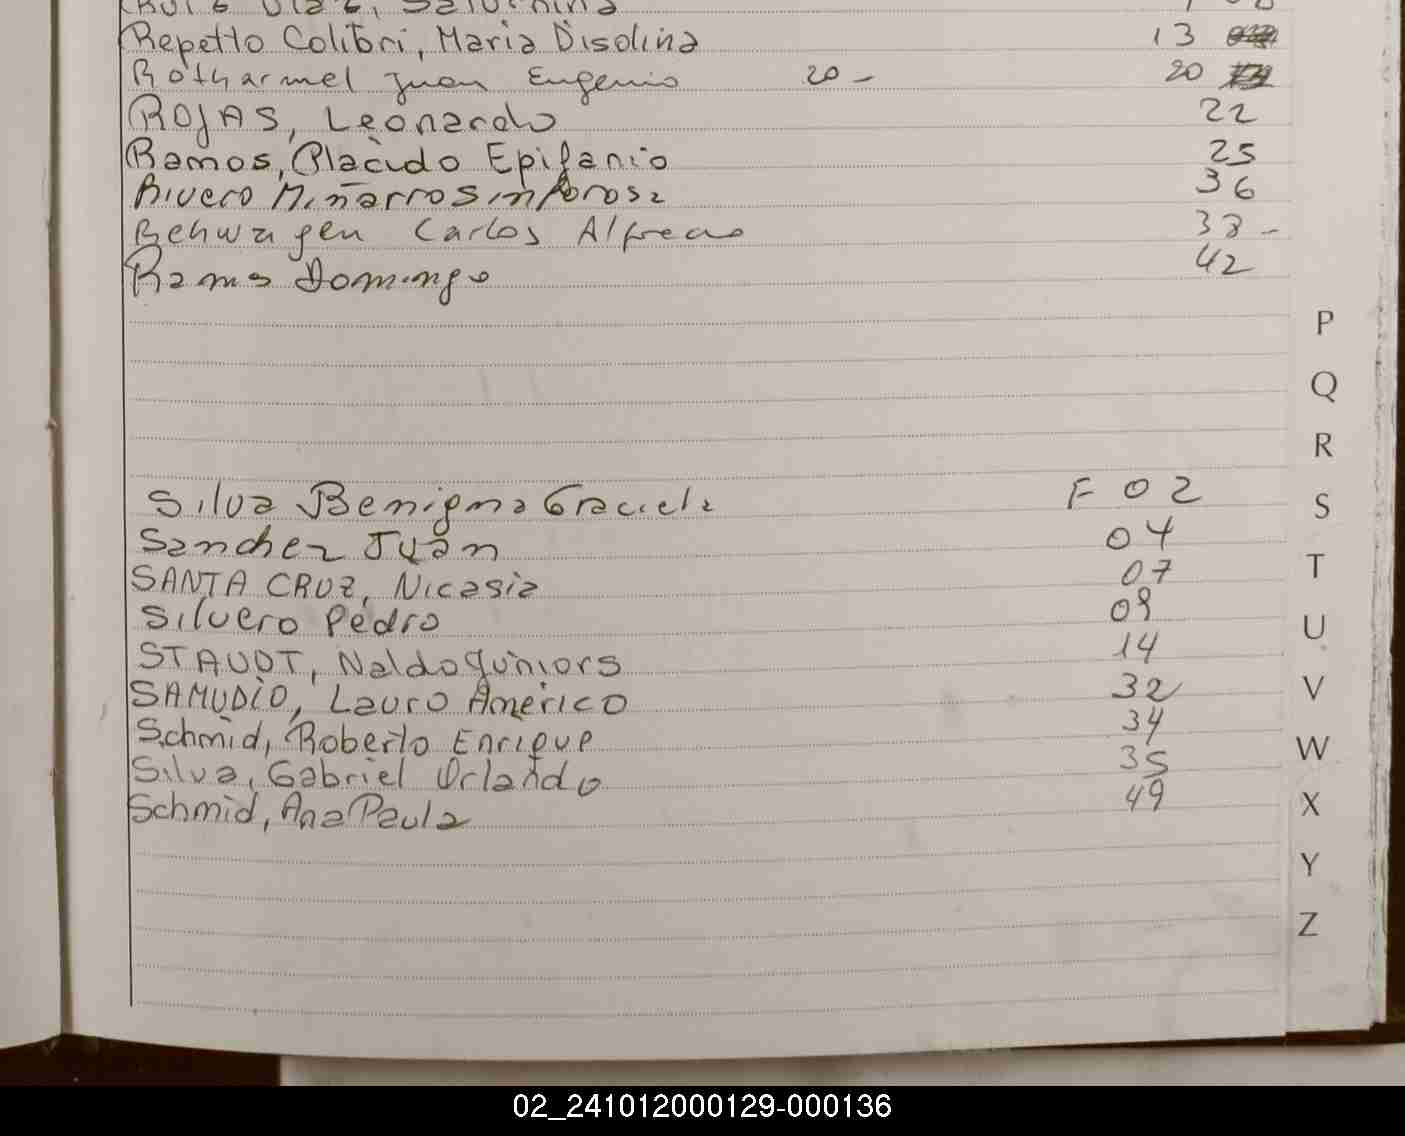 Repetto Colibri, Maria Disolina 13
Rotharmel Juan Eugenio 20 - 20
ROJAS, Leonardo 22
Ramos, Placido Epifanio 25
Rivero Miñarro Sinforosa 36
Rehwagen Carlos Alfredo 38 -
Ramos Domingo 42
P
Q
R
Silva Benigna Graciela F 02
S
Sanchez Juan 04
SANTA CRUZ, Nicasia 07
T
Silvero Pedro 09
U
STAUDT, Naldo Juniors 14
SAMUDIO, Lauro Américo 32
V
Schmid, Roberto Enrique 34
W
Silva, Gabriel Orlando 35
Schmid, Ana Paula 49
X
Y
Z
02_241012000129-000136